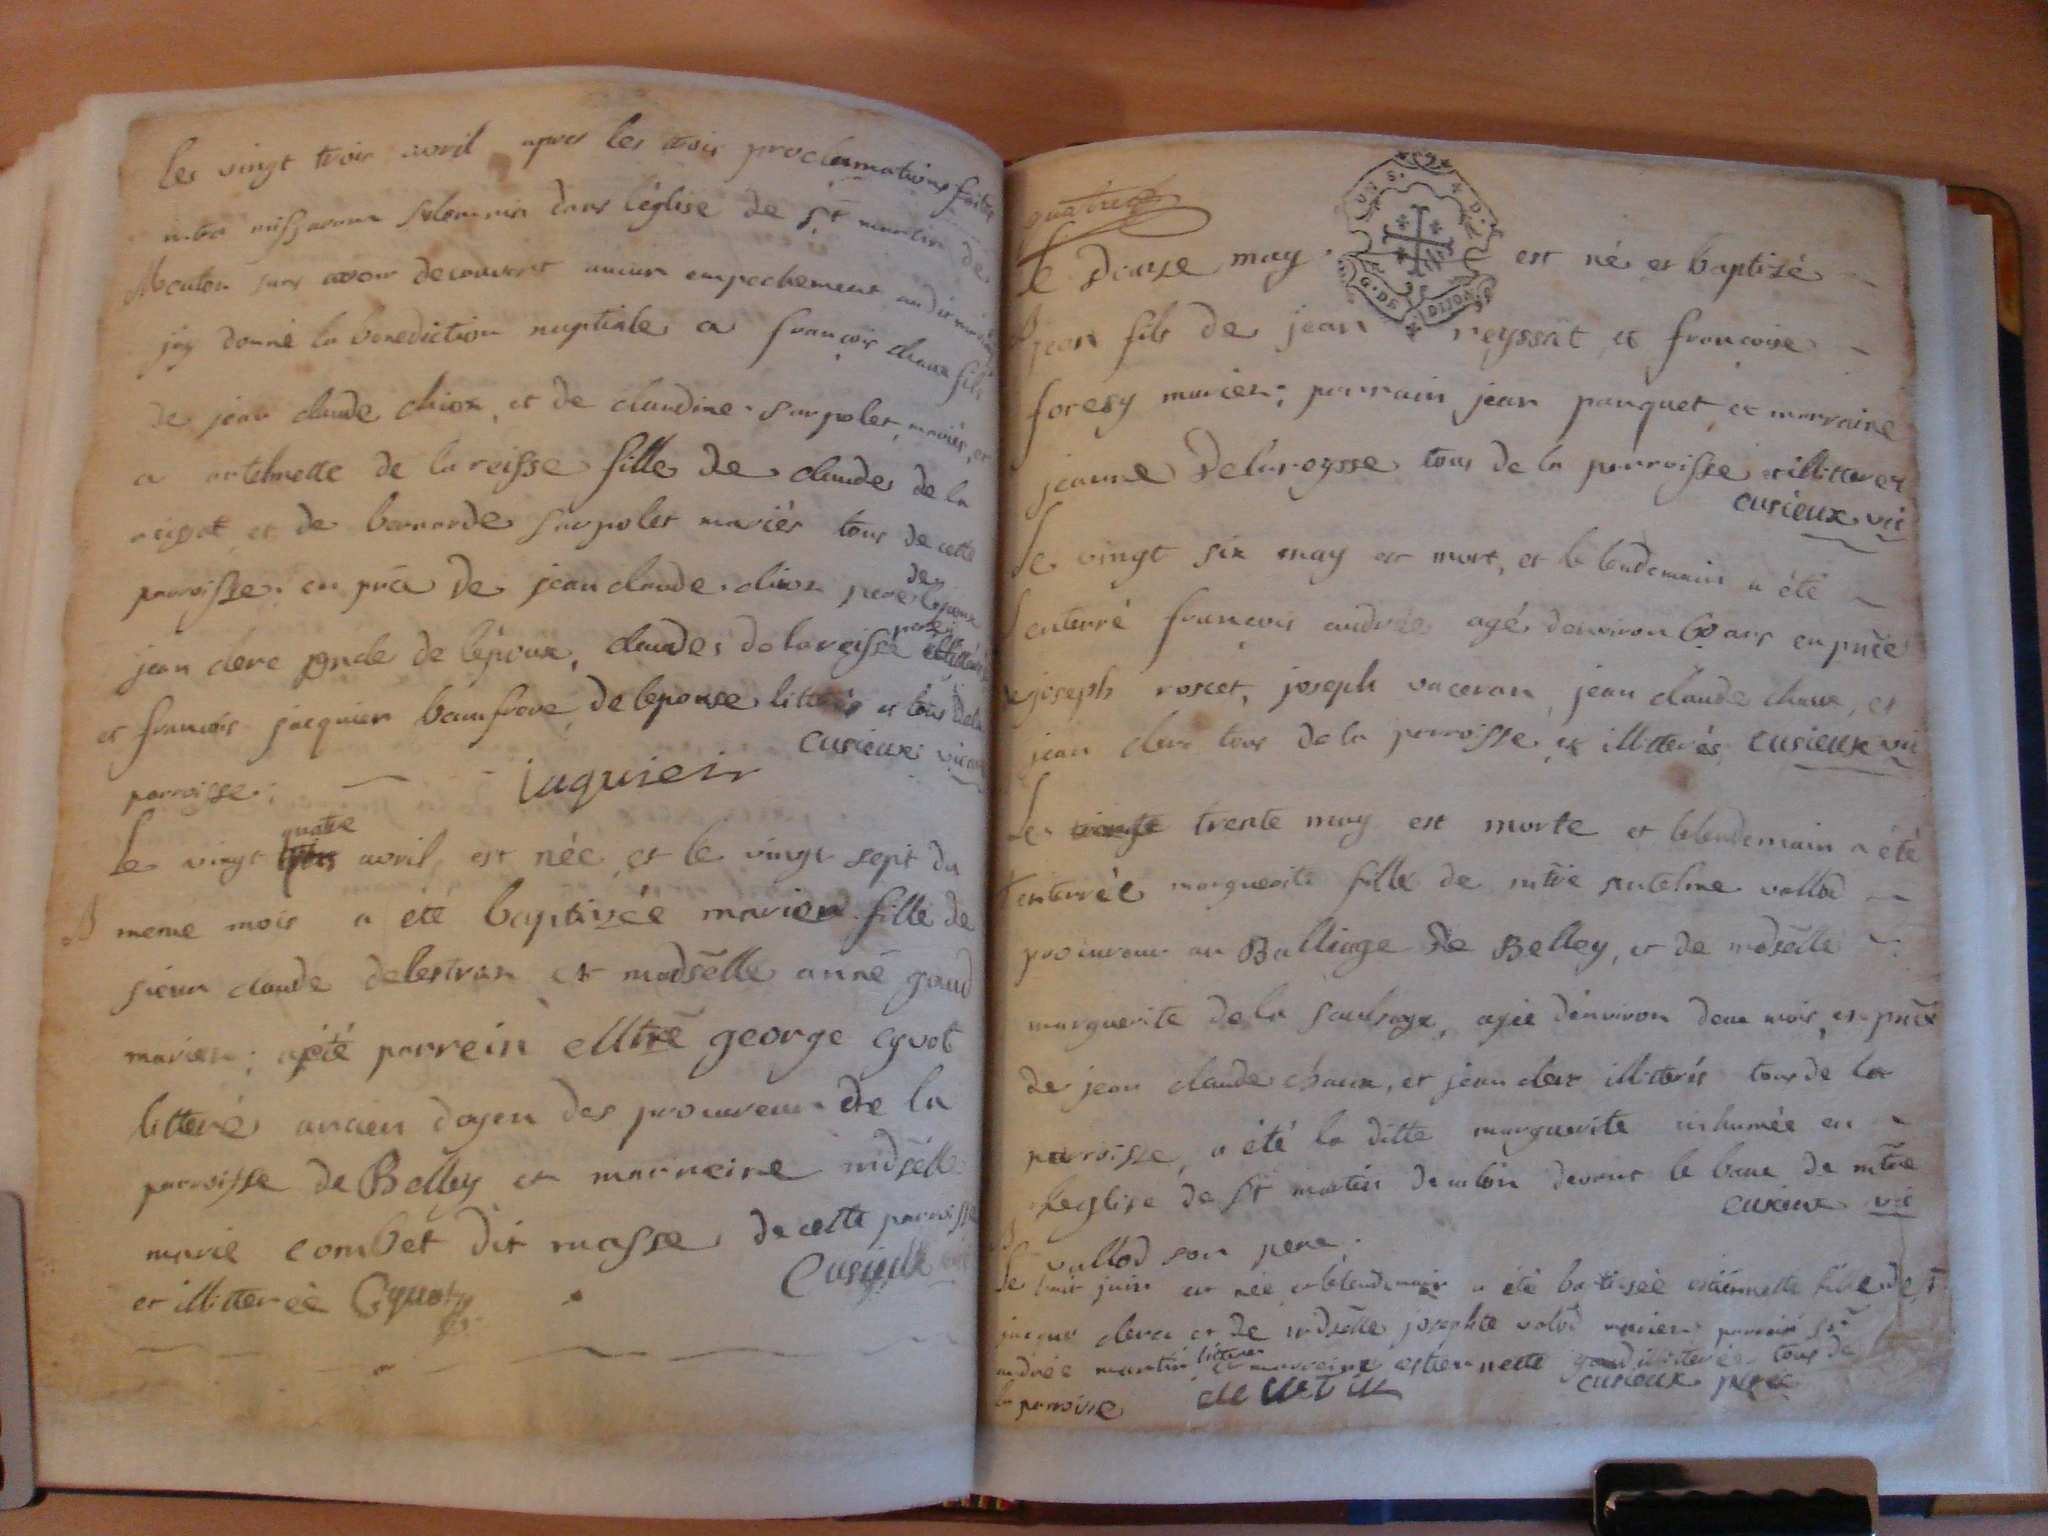 les vingt trois avril apres les trois proclamations faites
inter missarum solemnia dans l'église de st martin de
sans avoir decouvert aucun empechement
jay donné la benediction nuptiale a françois chaux fils
de jean claude et de claudine surpolet, mariés, et
a antelmette de la reisse fille de claude de la
et de bernarde surpolet mariés tous de cette
parroisse. en pñce de jean claude pere de lepoux
jean clerc oncle de lépoux, claude de la reisse pere
et françois jacquier beaufrere de lepouse litterés et tous de la
curieux vicaire
parroisse.
jaquieir
le vingt quatre avril, est née, et le vingt sept du
B meme mois a été baptizée fille de
sieur claude delestran et madselle anne gaud
mariés; a été parrein Mtre george cyvot
litteré ancien doyen des procureurs de la
parroisse de Belley et marreine mdselle
marie combet dit masse de cette parroisse
et illitterée Cyvot
Curieux
quatre
le douze may est né et baptizé
B jean fils de jean reyssat et françoise
foresy mariés; parrain jean panquet et marraine
jeanne Delareysse tous de la parroisse et illitterés
curieux vic
le vingt six may est mort, et le lendemain a été
enterré françois andrée agé denviron 60 ans en pñce
joseph roscet, joseph vaceran, jean claude chaux, et
jean clerc tous de la parroisse et illitterés curieux vic
Le trente may est morte et le lendemain a été
enterrée marguerite fille de mtre antelme vallod
procureur au Balliage de Belley, et de mdselle
marguerite de la saulsaye, agée d'environ deux mois, en pñce
de jean claude chaux, et jean clerc illitterés tous de la
parroisse, a été la ditte marguerite inhumée en
l'eglise de st martin devant le banc de mtre
curieux vic
vallod son pere.
B
le huit juin est née et le lendemain a été batisée estiennette fille de sr
jacque clerc et de mdselle josephte valod mariés parrain sr
andrée martin litteré et marreine estiennette gaud illitterée tous de
la parroisse curieux